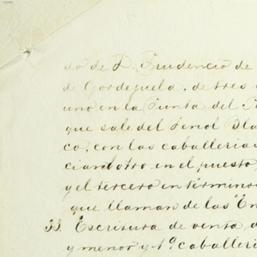 do de D. Prudencio de
de Gordejuela, de tres
uno en la Punta del
que sale del Penol Bla
co, con las caballerias
ciam otro en el puesto
y el tercero en termino
que llaman de las En
Escritura de venta,
y menor y 1ª caballeri